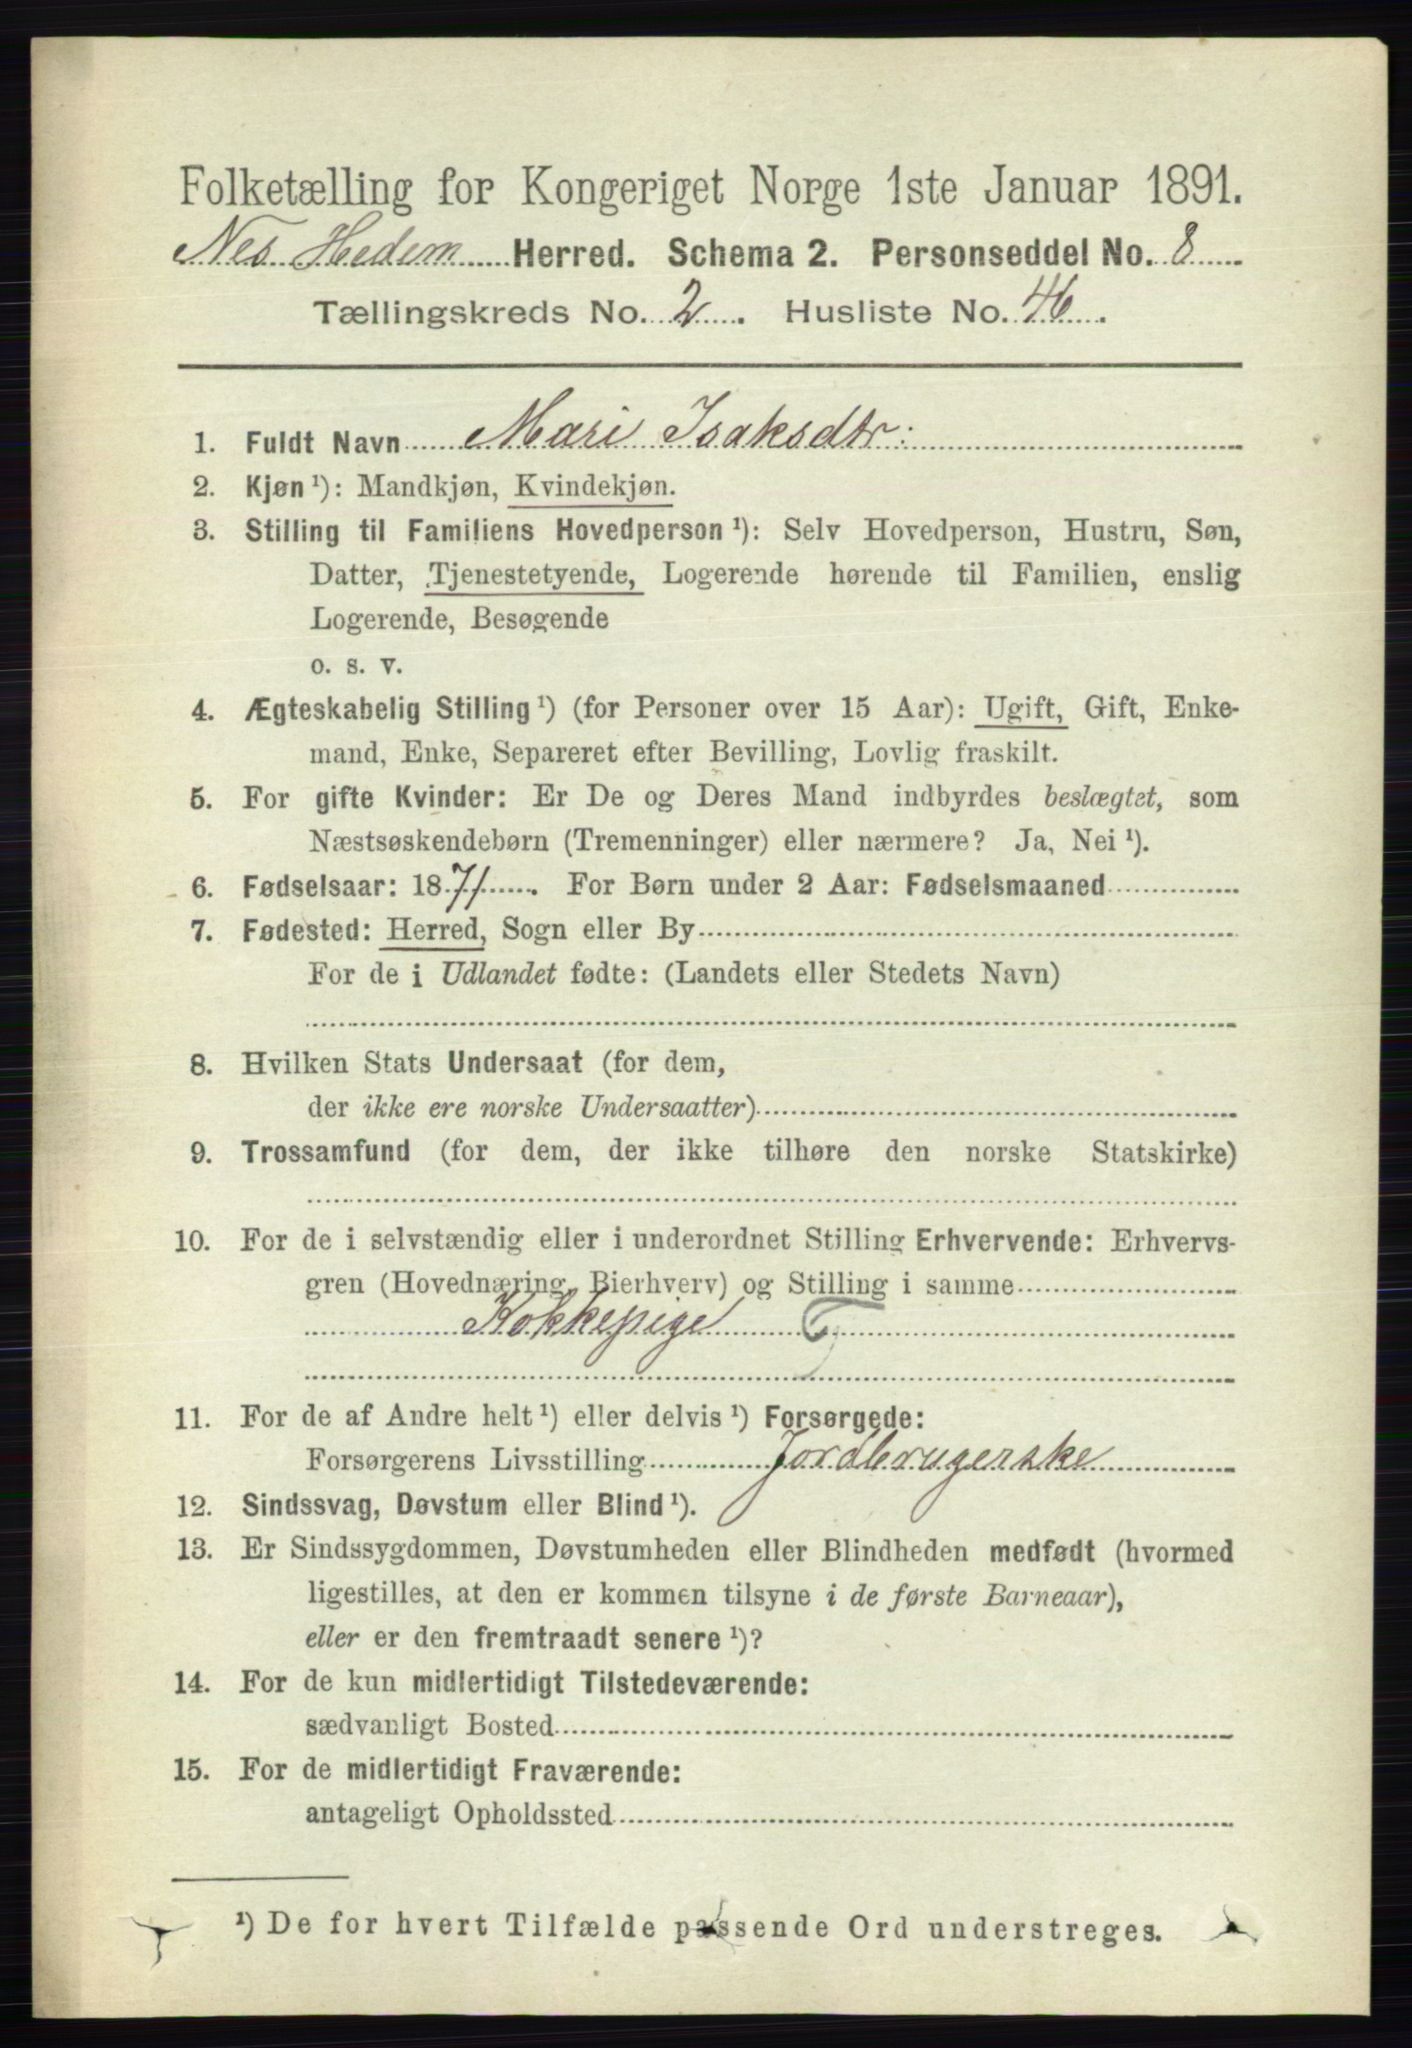 Folketælling for Kongeriget Norge 1ste Januar 1891.
Nes Hedem Herred. Schema 2. Personseddel No. 8
Tællingskreds No. 2. Husliste No. 46.
1. Fuldt Navn Mari Isaksdtr:
2. Kjøn ¹): Mandkjøn, Kvindekjøn.
3. Stilling til Familiens Hovedperson ¹): Selv Hovedperson, Hustru, Søn,
Datter, Tjenestetyende, Logerende hørende til Familien, enslig
Logerende, Besøgende
o. s. v.
4. Ægteskabelig Stilling ¹) (for Personer over 15 Aar): Ugift, Gift, Enke-
mand, Enke, Separeret efter Bevilling, Lovlig fraskilt.
5. For gifte Kvinder: Er De og Deres Mand indbyrdes beslægtet, som
Næstsøskendebørn (Tremenninger) eller nærmere? Ja, Nei ¹).
6. Fødselsaar: 1871. For Børn under 2 Aar: Fødselsmaaned
7. Fødested: Herred, Sogn eller By
For de i Udlandet fødte: (Landets eller Stedets Navn)
8. Hvilken Stats Undersaat (for dem,
der ikke ere norske Undersaatter)
9. Trossamfund (for dem, der ikke tilhøre den norske Statskirke)
10. For de i selvstændig eller i underordnet Stilling Erhvervende: Erhvervs-
gren (Hovednæring, Bierhverv) og Stilling i samme
Kokkepige
11. For de af Andre helt ¹) eller delvis ¹) Forsørgede:
Forsørgerens Livsstilling Jordbrugerske
12. Sindssvag, Døvstum eller Blind ¹).
13. Er Sindssygdommen, Døvstumheden eller Blindheden medfødt (hvormed
ligestilles, at den er kommen tilsyne i de første Barneaar),
eller er den fremtraadt senere ¹)?
14. For de kun midlertidigt Tilstedeværende:
sædvanligt Bosted
15. For de midlertidigt Fraværende:
antageligt Opholdssted
¹) De for hvert Tilfælde passende Ord understreges.